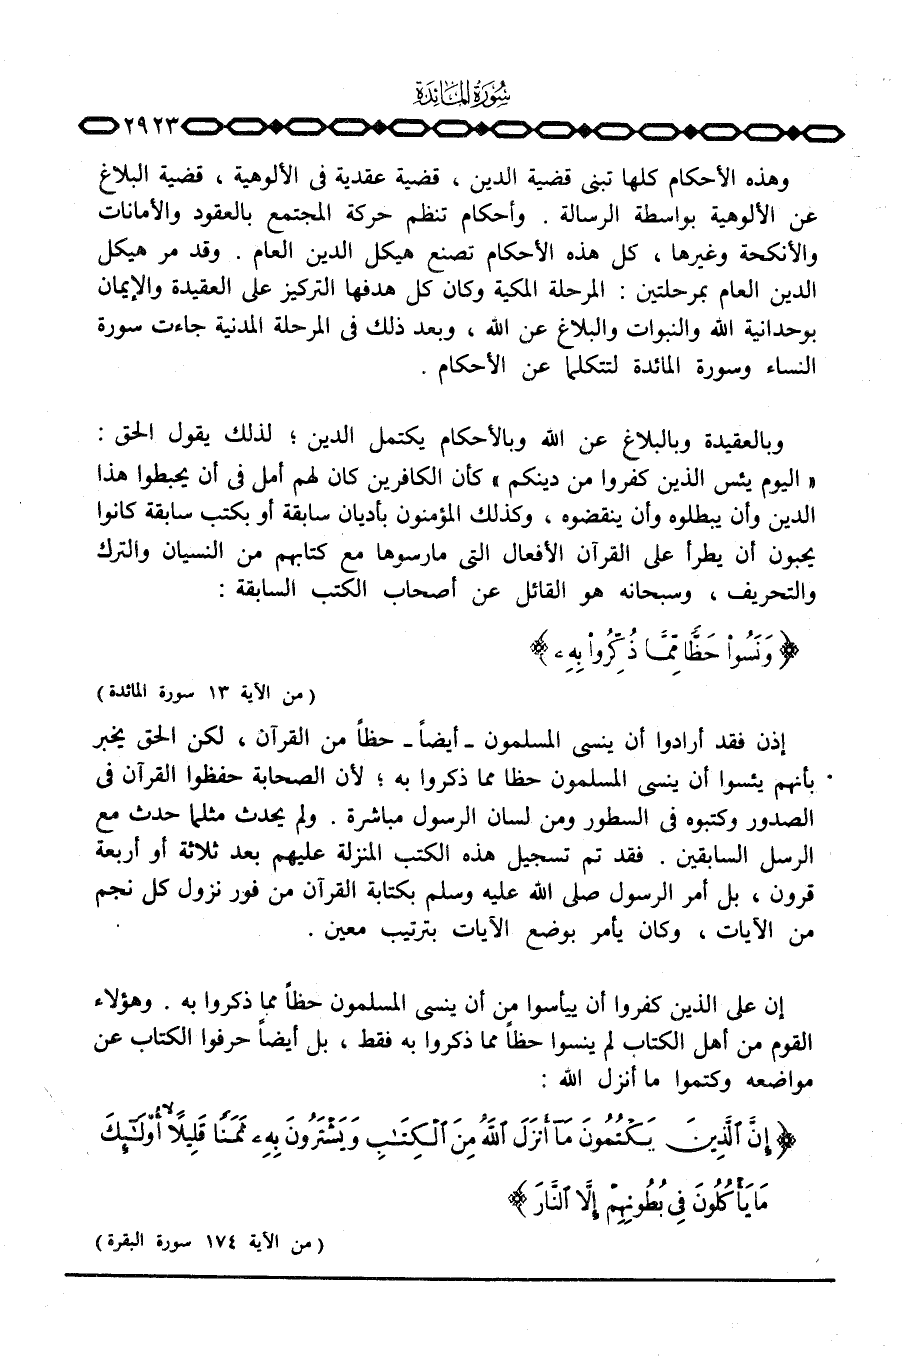 سُورَةُ المَائِدَة
٢٩٢٣
وهذه الأحكام كلها تبنى قضية الدين ، قضية عقدية فى الألوهية ، قضية البلاغ
عن الألوهية بواسطة الرسالة . وأحكام تنظم حركة المجتمع بالعقود والأمانات
والأنكحة وغيرها ، كل هذه الأحكام تصنع هيكل الدين العام . وقد مر هيكل
الدين العام بمرحلتين : المرحلة المكية وكان كل هدفها التركيز على العقيدة والإيمان
بوحدانية الله والنبوات والبلاغ عن الله ، وبعد ذلك فى المرحلة المدنية جاءت سورة
النساء وسورة المائدة لتتكلما عن الأحكام .
وبالعقيدة وبالبلاغ عن الله وبالأحكام يكتمل الدين ؛ لذلك يقول الحق :
« اليوم يئس الذين كفروا من دينكم » كأن الكافرين كان لهم أمل فى أن يحبطوا هذا
الدين وأن يبطلوه وأن ينقضوه ، وكذلك المؤمنون بأديان سابقة أو بكتب سابقة كانوا
يحبون أن يطرأ على القرآن الأفعال التى مارسوها مع كتابهم من النسيان والترك
والتحريف ، وسبحانه هو القائل عن أصحاب الكتب السابقة :
﴿ وَنَسُوا۟ حَظًّا مِّمَّا ذُكِّرُوا۟ بِهِۦ ﴾
( من الآية ١٣ سورة المائدة )
إذن فقد أرادوا أن ينسى المسلمون ـ أيضاً ـ حظاً من القرآن ، لكن الحق يخبر
بأنهم يئسوا أن ينسى المسلمون حظا مما ذكروا به ؛ لأن الصحابة حفظوا القرآن فى
الصدور وكتبوه فى السطور ومن لسان الرسول مباشرة . ولم يحدث مثلما حدث مع
الرسل السابقين . فقد تم تسجيل هذه الكتب المنزلة عليهم بعد ثلاثة أو أربعة
قرون ، بل أمر الرسول صلى الله عليه وسلم بكتابة القرآن من فور نزول كل نجم
من الآيات ، وكان يأمر بوضع الآيات بترتيب معين .
إن على الذين كفروا أن ييأسوا من أن ينسى المسلمون حظاً مما ذكروا به . وهؤلاء
القوم من أهل الكتاب لم ينسوا حظاً مما ذكروا به فقط ، بل أيضاً حرفوا الكتاب عن
مواضعه وكتموا ما أنزل الله :
﴿ إِنَّ ٱلَّذِينَ يَكْتُمُونَ مَآ أَنزَلَ ٱللَّهُ مِنَ ٱلْكِتَٰبِ وَيَشْتَرُونَ بِهِۦ ثَمَنًا قَلِيلًا ۙ أُو۟لَٰٓئِكَ
مَا يَأْكُلُونَ فِى بُطُونِهِمْ إِلَّا ٱلنَّارَ ﴾
( من الآية ١٧٤ سورة البقرة )